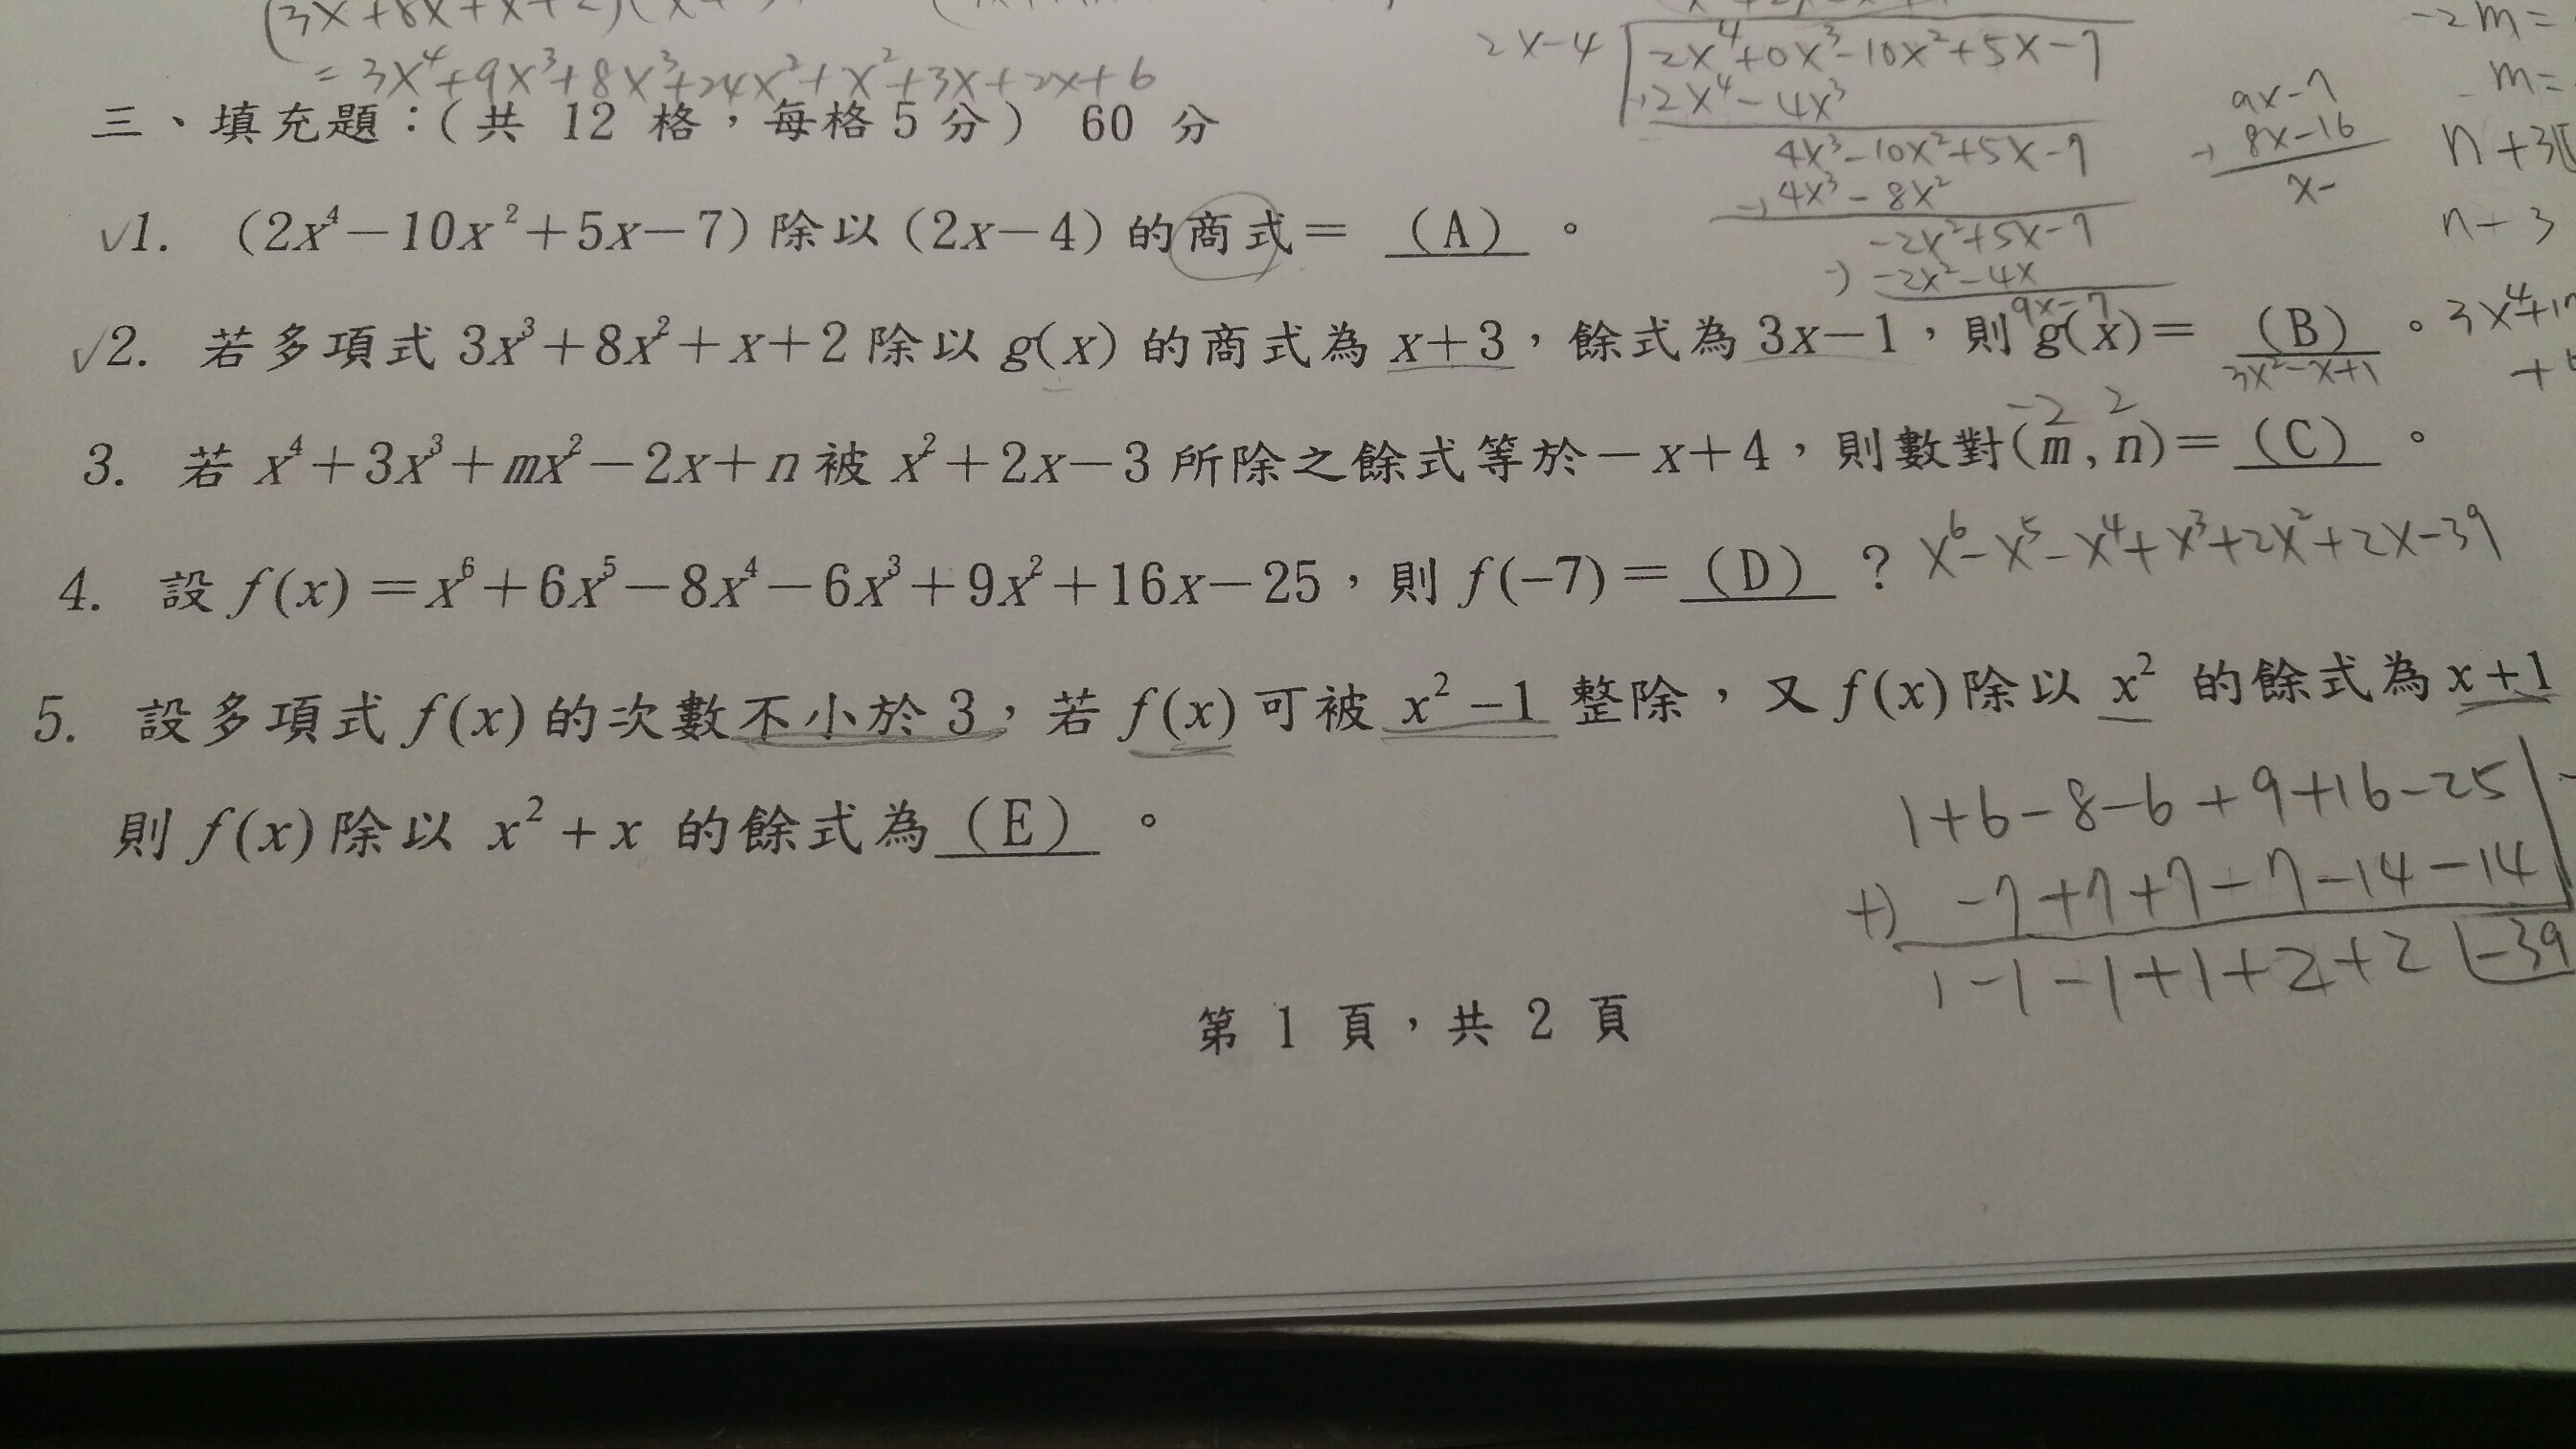 = 3x⁴+9x³+8x³+24x²+x²+3x+2x+6
三、填充題：(共 12 格，每格5分) 60 分
2x-4
2x⁴+0x³-10x²+5x-7
-)2x⁴-4x³
4x³-10x²+5x-7
-)4x³-8x²
-2x²+5x-7
-)-2x²-4x
9x-7
9x-7
-)8x-16
x-
-2m=
m=
n+3
n+3
√1. (2x⁴-10x²+5x-7)除以(2x-4)的商式= (A) 。
√2. 若多項式 3x³+8x²+x+2除以 g(x) 的商式為 x+3，餘式為 3x-1，則 g(x)= (B) 。
3x²-x+1
3x⁴+
-2 2
3. 若 x⁴+3x³+mx²-2x+n被 x²+2x-3所除之餘式等於-x+4，則數對(m,n)= (C) 。
4. 設 f(x)=x⁶+6x⁵-8x⁴-6x³+9x²+16x-25，則 f(-7)= (D) ？
x⁶-x⁵-x⁴+x³+2x²+2x-39
5. 設多項式 f(x)的次數不小於 3，若 f(x)可被 x²-1 整除，又 f(x)除以 x² 的餘式為 x+1
則 f(x)除以 x²+x 的餘式為 (E) 。
1+6-8-6+9+16-25
+) -7+7+7-7-14-14
1-1-1+1+2+2 -39
第 1 頁，共 2 頁